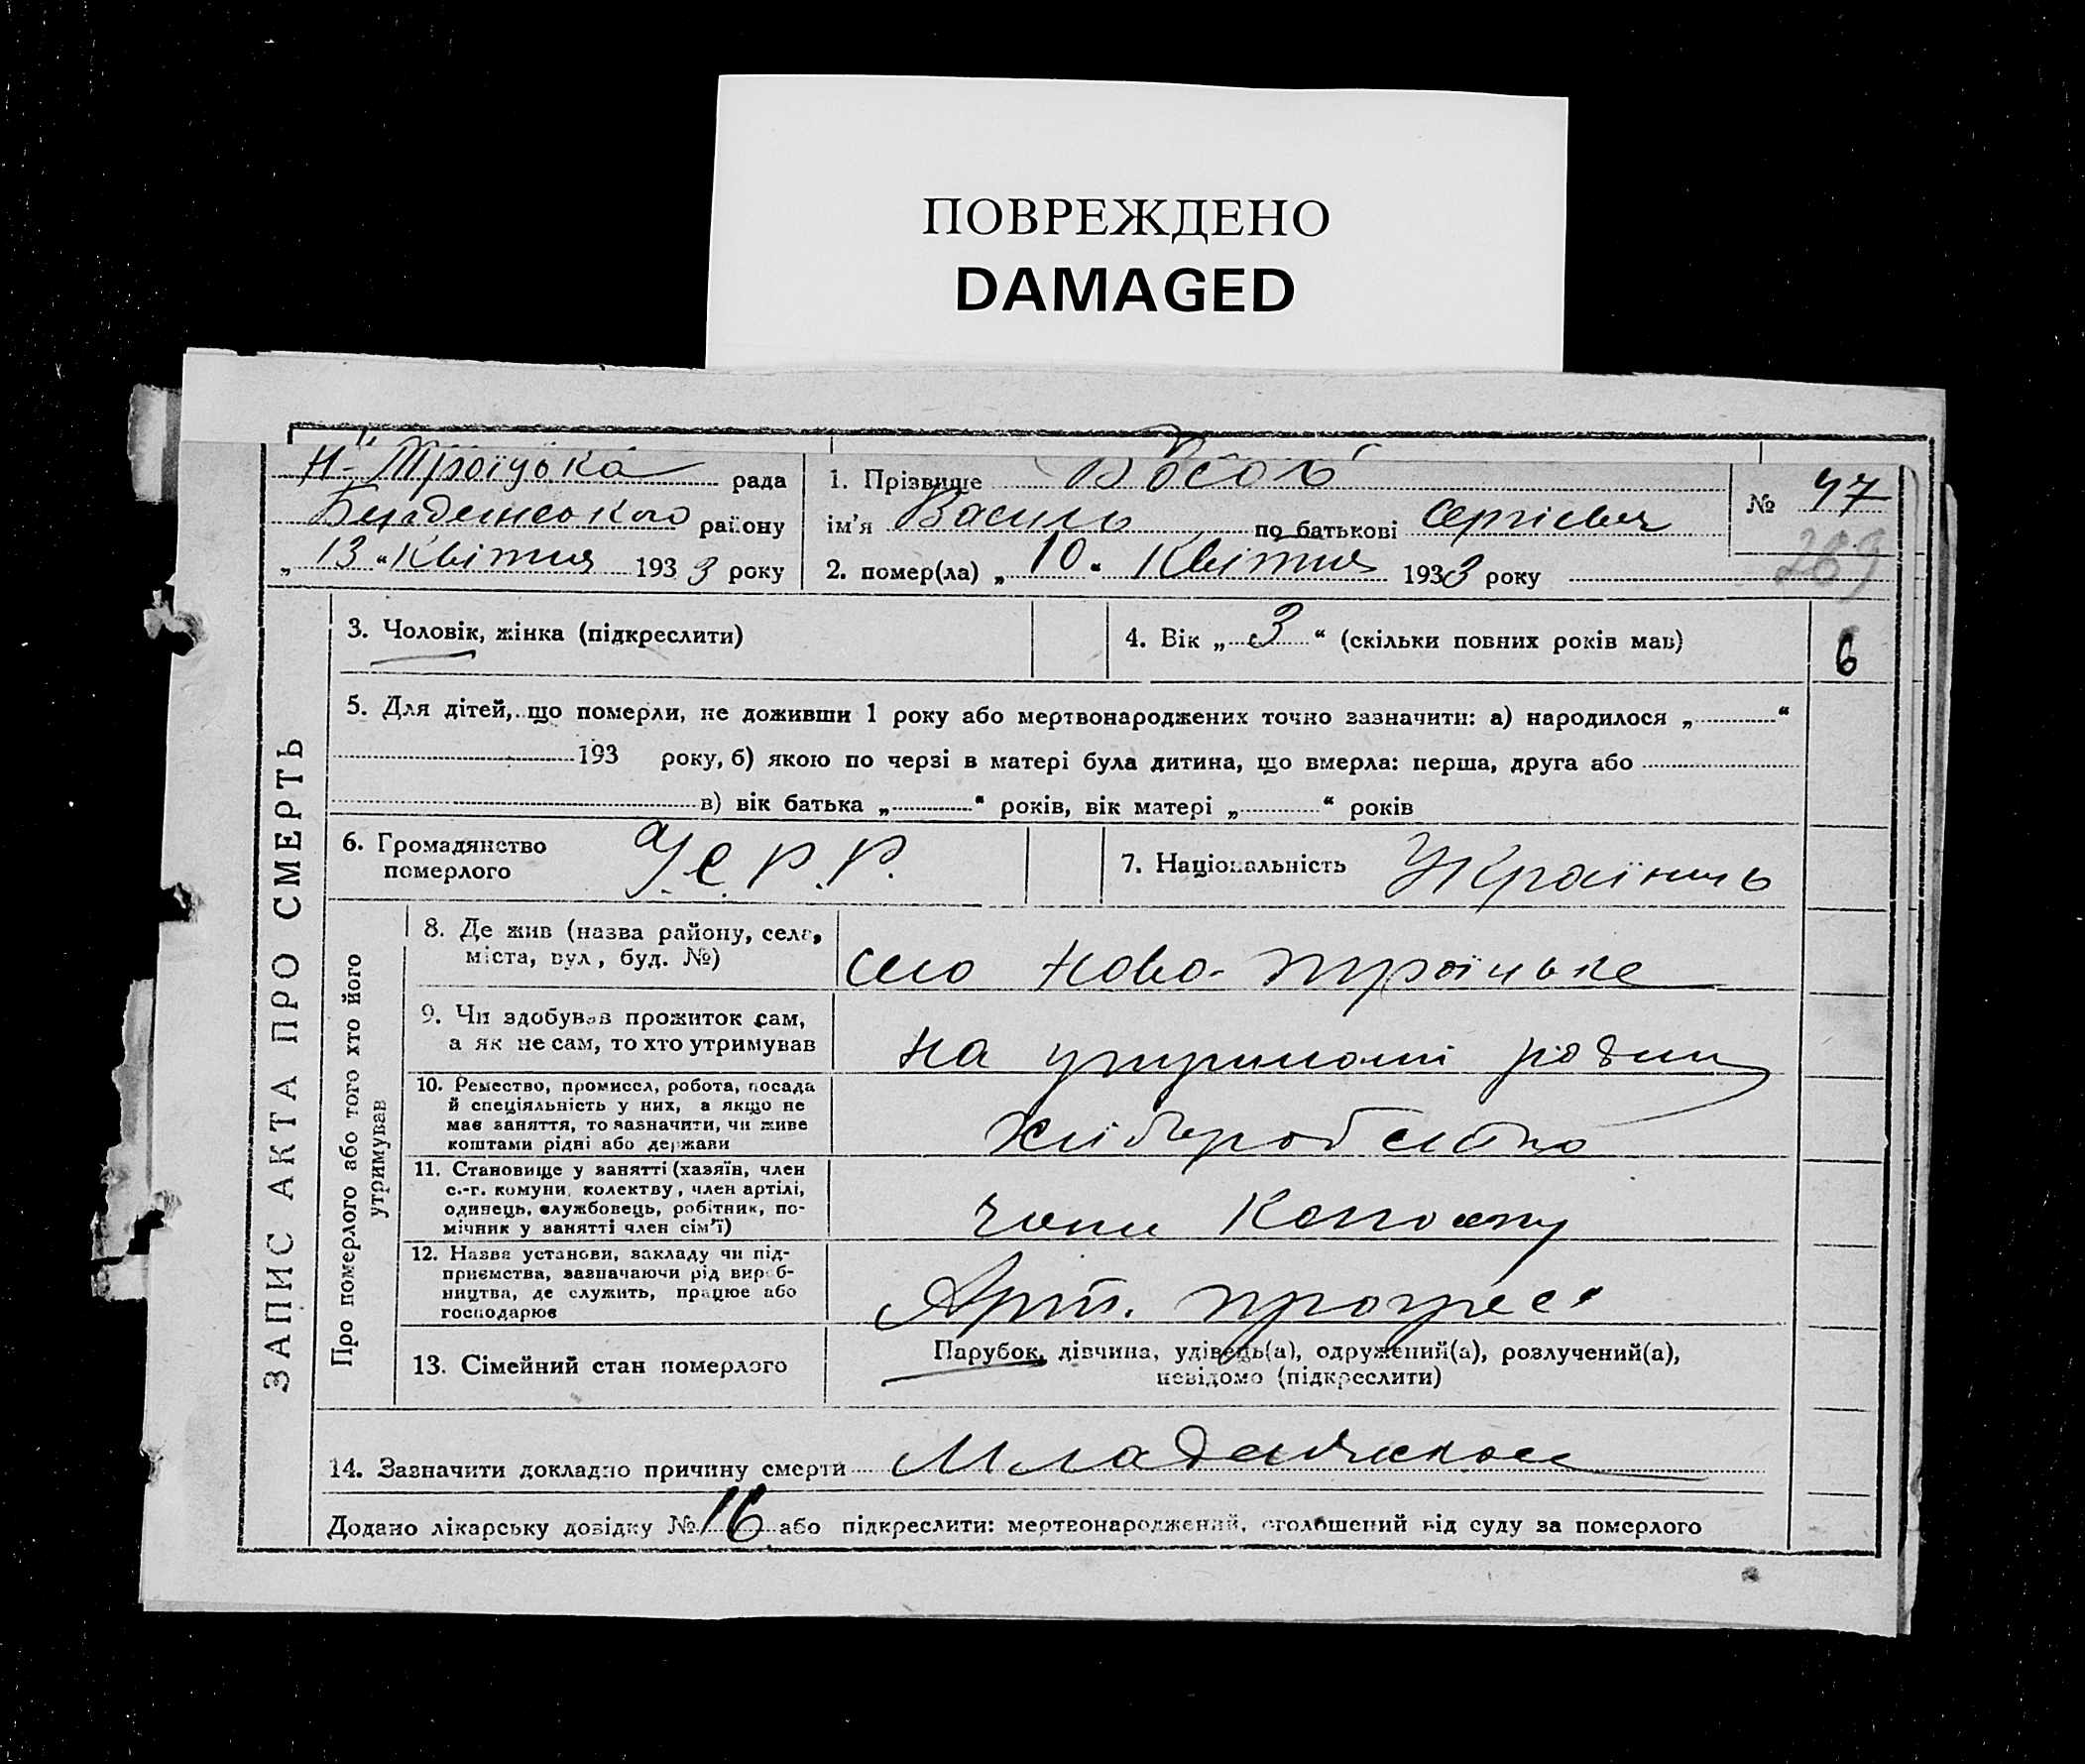 ПОВРЕЖДЕНО
DAMAGED
Н-Троїцька рада
Бердянського району
„ 13 “ Квітня 1933 року
1. Прізвище
ім'я Василь по батькові Сергієвич
2. помер(ла) „ 10 “ Квітня 1933 року
№ 47
289
ЗАПИС АКТА ПРО СМЕРТЬ
3. Чоловік, жінка (підкреслити)
4. Вік „ 3 “ (скільки повних років мав)
6
5. Для дітей, що померли, не доживши 1 року або мертвонароджених точно зазначити: а) народилося „ “
193 року, б) якою по черзі в матері була дитина, що вмерла: перша, друга або
в) вік батька „ “ років, вік матері „ “ років
6. Громадянство
померлого
У.С.Р.Р.
7. Національність Українець
Про померлого або того хто його
утримував
8. Де жив (назва району, села,
міста, вул, буд. №)
село Ново-троїцьке
9. Чи здобував прожиток сам,
а як не сам, то хто утримував
на утриманні родини
10. Ремество, промисел, робота, посада
й спеціяльність у них, а якщо не
має заняття, то зазначити, чи живе
коштами рідні або держави
Хліборобство
11. Становище у занятті (хазяїн, член
с.-г. комуни, колективу, член артілі,
одинець, службовець, робітник, по-
мічник у занятті член сім'ї)
член Колгоспу
12. Назва установи, закладу чи під-
приємства, зазначаючи рід вироб-
ництва, де служить, працює або
господарює
Арт. прогрес
13. Сімейний стан померлого
Парубок, дівчина, удівець(а), одружений(а), розлучений(а),
невідомо (підкреслити)
14. Зазначити докладно причину смерти
Додано лікарську довідку № 16 або підкреслити: мертвонароджений, оголошений від суду за померлого